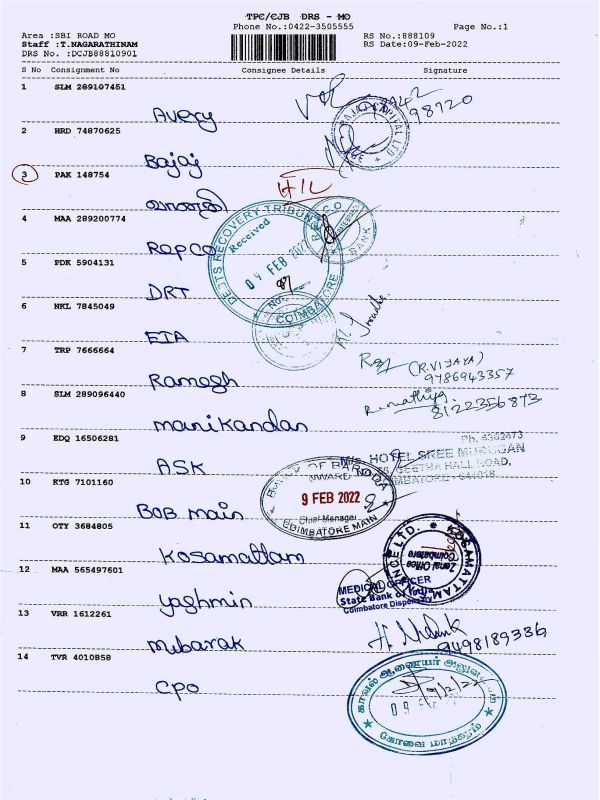 TPC/CJB DRS - MO
Phone No.:0422-3505555 Page No.:1
Area :SBI ROAD MO RS No.:888109
Staff :T.NAGARATHINAM RS Date:09-Feb-2022
DRS No. :DCJB88810901
S No Consignment No Consignee Details Signature
1 SLM 289107451
Avery 98920
2 HRD 74870625
Bajaj
3 PAK 148754
H/L
4 MAA 289200774
Repco
DEBTS RECOVERY TRIBUNAL
Received
09 FEB 2022
COIMBATORE
REPCO BANK
5 PDK 5904131
DRT
6 NKL 7845049
EIA
7 TRP 7666664
Ramesh
(R.VIJAYA)
9786943357
8 SLM 289096440
8122356873
manikandan
9 EDQ 16506281
Ph. 4362473
M/s. HOTEL SREE MURUGAN
GEETHA HALL ROAD,
COIMBATORE - 641018
ASK
10 KTG 7101160
BANK OF BARODA
INWARD
9 FEB 2022
Chief Manager
COIMBATORE MAIN
BOB main
11 OTY 3684805
Kosamattam
KOSAMATTAM FINANCE LTD.
Zonal Office
Coimbatore
12 MAA 565497601
MEDICAL OFFICER
State Bank of India
Coimbatore Dispensary
yashmin
13 VRR 1612261
mubarak
9498189336
14 TVR 4010858
CPO
காவல் ஆணையர் அலுவலகம்
9/2/22
09 FEB
கோவை மாநகரம்